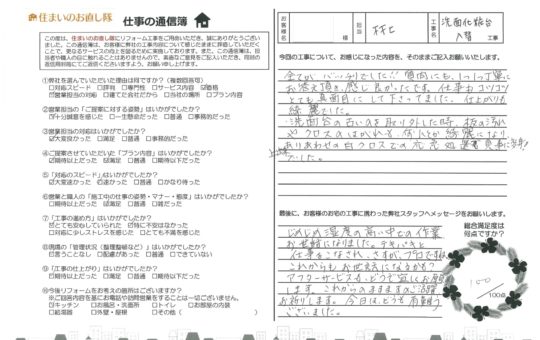 住まいのお直し隊 仕事の通信簿
この度は、住まいのお直し隊にリフォーム工事をご用命いただき、誠にありがとうございました。この通信簿は、お客様に弊社の工事内容について感じたままに評価していただくことで、更なるサービスの向上を図るために実施しております。
①弊社を選んでいただいた理由は何ですか？(複数回答可)
□対応スピード □評判 □専門性 □サービス内容 ☑価格
☑営業担当の対応 □建てた会社だから □当社の場所 □プラン内容
②営業担当の「ご提案に対する姿勢」はいかがでしたか？
☑十分誠意を感じた □一生懸命だった □普通 □不満だった
③営業担当の対応はいかがでしたか？
☑大変良かった □満足 □普通 □事務的だった
④ご提案させていただいた「プラン内容」はいかがでしたか？
□期待以上だった ☑満足 □普通 □期待以下だった
⑤「対応のスピード」はいかがでしたか？
☑大変速かった □速かった □普通 □かなり待った
⑥営業と職人の「施工中の仕事の姿勢・マナー・態度」はいかがでしたか？
□期待以上だった ☑満足 □普通 □雑だった
⑦「工事の進め方」はいかがでしたか？
□とても安心していられた ☑特に不安はなかった
□対応に少しストレスを感じた □とても不満を感じた
⑧現場の「管理状況(整理整頓など)」はいかがでしたか？
☑言うことなし □配慮があった □普通 □できていない
⑨「工事の仕上がり」はいかがでしたか？
□期待以上だった ☑満足 □普通 □期待以下だった
⑩今後リフォームをお考えの箇所はございますか？
※ご回答内容を基にお電話や訪問営業をすることは一切ございません。
☑キッチン □お風呂・洗面所 □トイレ □お部屋の内装
□給湯器 □外壁・屋根 □その他( )
お客様名
様
工事名
洗面化粧台
入替
今回の工事について、お感じになった内容を、そのままご記入お願いいたします。
全てがバッチリでした!! 質問にも、1つ1つ丁寧に
お答え頂き、感じ良かったです。仕事もコツコツ
とても真面目にして下さってました。仕上がりも
綺麗でした。
洗面台の古いのを取り外した時、板の汚れ
やクロスのはがれも、何とか綺麗になり
ありあわせの白クロスでの
でした。
最後に、お客様のお宅の工事に携わった弊社スタッフへメッセージをお願いします。
じめじめ湿度の高い中での作業
お世話になりました。テキパキと
仕事をこなされ、さすが、プロですね
これからもお世話になるかも?
アフターサービスも、どうぞ宜しくお願い
します。これからのますますのご活躍
お祈りします。今日は、どうも有難う
ございました。
総合満足度は何点ですか？
100
/100点